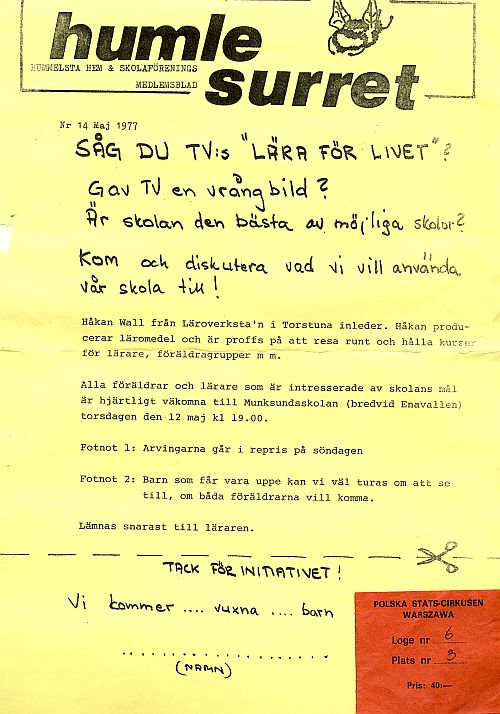 humle
HUMMELSTA HEM & SKOLAFÖRENINGS
MEDLEMSBLAD
surret
Nr 14 Maj 1977
SÅG DU TV:s "LÄRA FÖR LIVET"?
Gav TV en vrångbild?
Är skolan den bästa av möjliga skolor?
Kom och diskutera vad vi vill använda
vår skola till!
Håkan Wall från Läroverksta'n i Torstuna inleder. Håkan produ-
cerar läromedel och är proffs på att resa runt och hålla kurser
för lärare, föräldragrupper m m.
Alla föräldrar och lärare som är intresserade av skolans mål
är hjärtligt väkomna till Munksundsskolan (bredvid Enavallen)
torsdagen den 12 maj kl 19.00.
Fotnot 1: Arvingarna går i repris på söndagen
Fotnot 2: Barn som får vara uppe kan vi väl turas om att se
till, om båda föräldrarna vill komma.
Lämnas snarast till läraren.
TACK FÖR INITIATIVET!
Vi kommer .... vuxna .... barn
....................
(NAMN)
POLSKA STATS-CIRKUSEN
WARSZAWA
Loge nr 6
Plats nr 3
Pris: 40:—